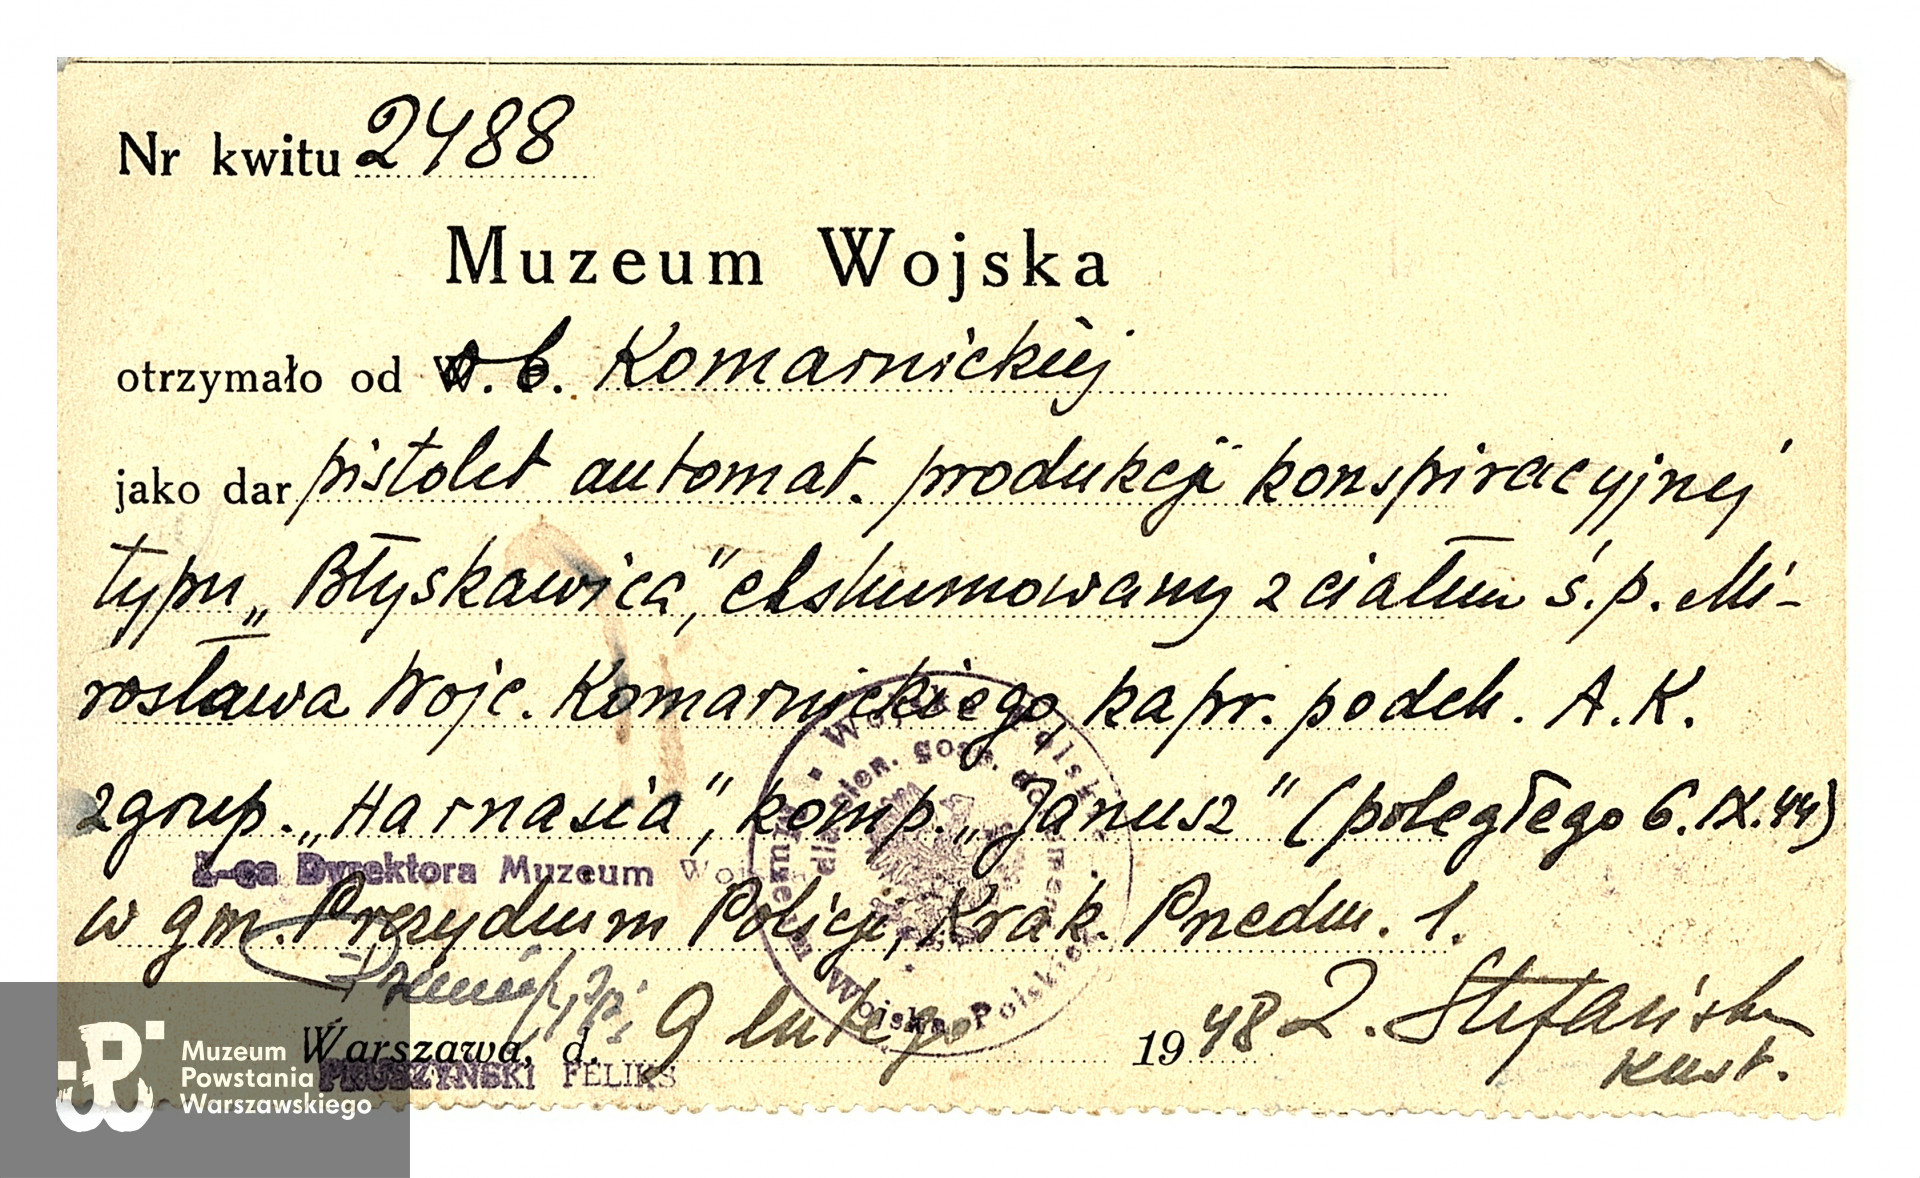 Nr kwitu 2488
Muzeum Wojska
otrzymało od W. ob. Komarnickiej
jako dar pistolet automat. produkcji konspiracyjnej
typu „Błyskawica", ekshumowany z ciałem ś.p. Mi-
rosława Wojc. Komarnickiego, kapr. podch. A.K.
zgrup. „Harnasia", komp. „Janusz" (poległego 6.IX.44)
Z-ca Dyrektora Muzeum Wojska
w gm. Prezydium Policji, Krak. Przedm. 1.
Warszawa, d. 9 lutego 1948 Z. Stefańska
kust.
PRUSZYŃSKI FELIKS
Wojska Polskiego
Muzeum
Powstania
Warszawskiego